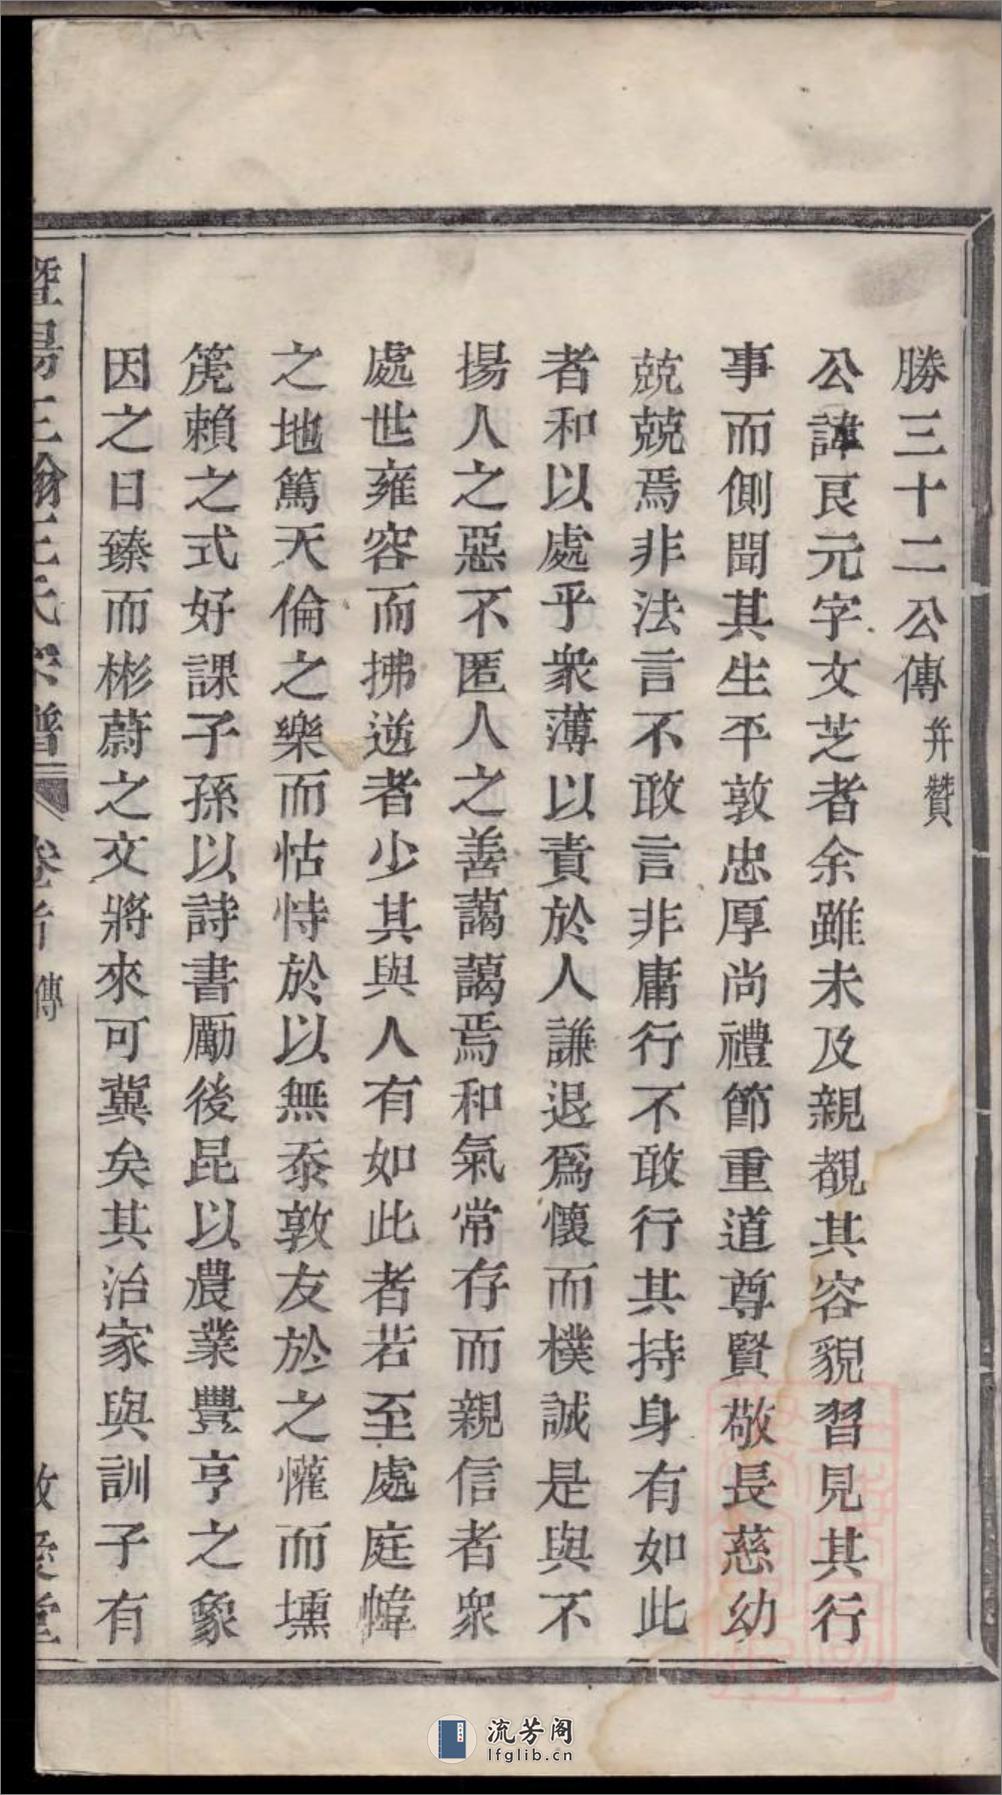 勝三十二公傳并贊
公諱艮元字文芝者余雖未及親覩其容貌習見其行
事而側聞其生平敦忠厚尚禮節重道尊賢敬長慈幼
兢兢焉非法言不敢言非庸行不敢行其持身有如此
者和以處乎衆薄以責於人謙退爲懷而樸誠是與不
揚人之惡不匿人之善藹藹焉和氣常存而親信者衆
處世雍容而拂逆者少其與人有如此者若至處庭幃
之地篤天倫之樂而怙恃於以無忝敦友於之懽而壎
箎賴之式好課子孫以詩書勵後昆以農業豐亨之象
因之日臻而彬蔚之文將來可冀矣其治家與訓子有
暨陽三翁王氏宗譜 卷首 傳 敬愛堂
流芳阁
lfglib.cn